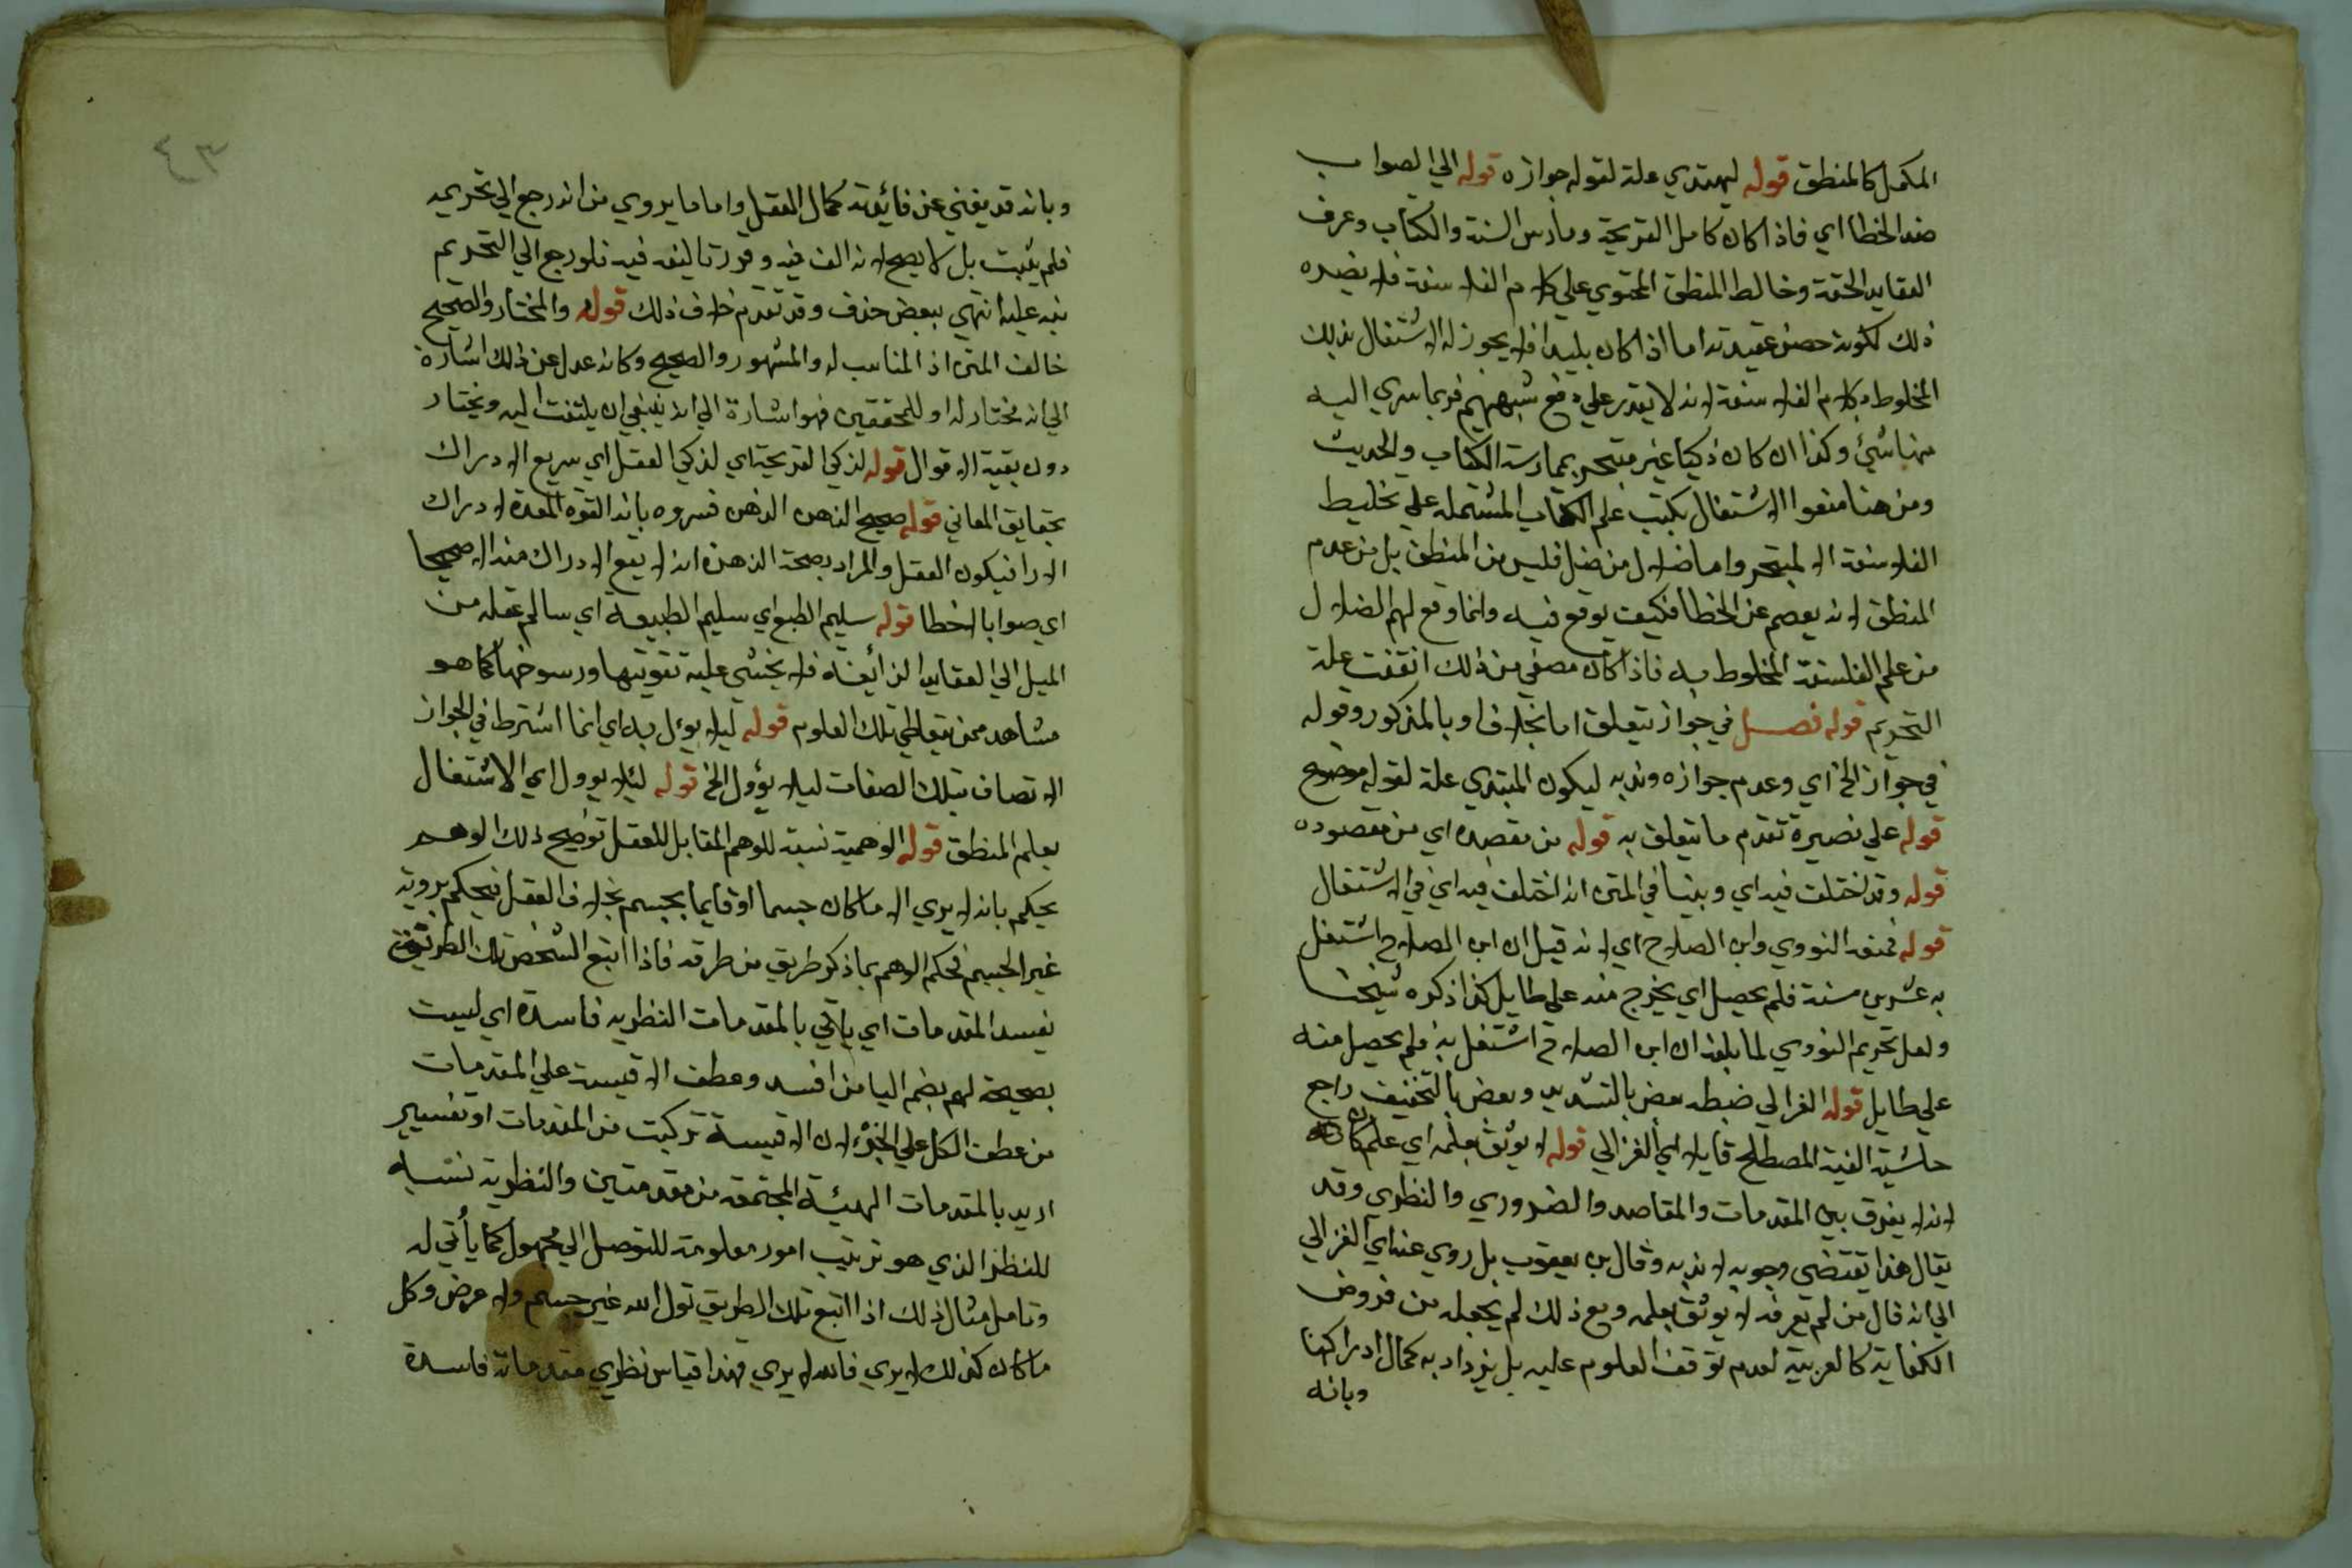 المكمل كالمنطق قوله ليهتدي علة لقوله جوازه قوله الي الصواب
ضد الخطا اي فاذا كان كامل القريحة ومارس السنة والكتاب وعرف
العقايد الحقة وخالط المنطق المحتوي علي كلام الفلاسفة فلا يضره
ذلك لكونه حصن عقيدته اما اذا كان بليدا فلا يجوز له الاشتغال بذلك
المخلوط بكلام الفلاسفة لانه لا يقدر علي دفع شبههم فربما سري اليه
منها شئ وكذا ان كان ذكيا غير متبحر بممارسة الكتاب والحديث
ومن هنا منعوا الاشتغال بكتب علم الكلام المشتملة علي تخليط
الفلاسفة الا لمتبحر واما ضلال من ضل فليس من المنطق بل من عدم
المنطق لانه يعصم عن الخطا فكيف يوقع فيه وانما وقع لهم الضلال
من علم الفلسفة المخلوط به فاذا كان مصفي من ذلك انتفت علة
التحريم قوله فصل في جواز يتعلق اما بخلاف او بالمذكور وقوله
في جواز الخ اي وعدم جوازه وندبه ليكون المبتدي علة لقوله موضح
قوله علي بصيرة تقدم ما يتعلق به قوله من مقصده اي من مقصوده
قوله وقد اختلف فيه اي وبينا في المتن انه اختلف فيه اي في الاشتغال
قوله فمنعه النووي وابن الصلاح اي لانه قيل ان ابن الصلاح اشتغل
به عشرين سنة فلم يحصل اي يخرج منه علي طايل كذا ذكره شيخنا
ولعل تحريم النووي لما بلغه ان ابن الصلاح اشتغل به فلم يحصل منه
علي طايل قوله الغزالي ضبطه بعض بالتشديد وبعض بالتخفيف راجع
حاشية الفية المصطلح قايلا اي الغزالي قوله لا يوثق بعلمه اي علم
لانه لا يفرق بين المقدمات والمقاصد والضروري والنظري وقد
يقال هذا يقتضي وجوبه لا ندبه وقال بن يعقوب بل روي عنه اي الغزالي
الي انه قال من لم يعرفه لا يوثق بعلمه ومع ذلك لم يجعله من فروض
الكفاية كالعربية لعدم توقف العلوم عليه بل يزداد به كمال ادراكها
وبانه
٤٣
وبانه قد يغني عن فائدته كمال العقل واما ما يروي من انه رجع الي تحريمه
فلم يثبت بل لا يصح لانه الف فيه وقرر تاليفه فيه فلو رجع الي التحريم
نبه عليه انتهي ببعض حذف وقد تقدم خلاف ذلك قوله والمختار والصحيح
خالف المتن اذ المناسب له والمشهور والصحيح وكانه عدل عن ذلك اشارة
الي انه مختار له او للمحققين فهو اشارة الي انه ينبغي ان يلتفت اليه ويختار
دون بقية الاقوال قوله لذكي القريحة اي لذكي العقل اي سريع الادراك
بحقايق المعاني قوله صحيح الذهن الذهن فسروه بانه القوة المعدة لادراك
الارا فيكون العقل والمراد بصحة الذهن انه لا يقع الادراك منه الا صحيحا
اي صوابا لا خطا قوله سليم الطبع اي سليم الطبيعة اي سالم عقله من
الميل الي العقايد الزائغة فلا يخشي عليه تقويتها ورسوخها كما هو
مشاهد ممن يتعاطي تلك العلوم قوله ليلا يؤل به اي انما اشترط في الجواز
الاتصاف بتلك الصفات ليلا يؤول الخ قوله ليلا يوول اي الاشتغال
بعلم المنطق قوله الوهمية نسبة للوهم المقابل للعقل توضيح ذلك الوهم
يحكم بانه لا يري الا ما كان جسما او قايما بجسم بخلاف العقل فيحكم برويه
غير الجسم فحكم الوهم بما ذكر طريق من طرقه فاذا اتبع الشخص تلك الطريقة
يفسد المقدمات اي ياتي بالمقدمات النظريه فاسدة اي ليست
بصحيحة لهم بضم اليا من افسد وعطف الاقيسة علي المقدمات
من عطف الكل علي الجزء لان الاقيسة تركبت من المقدمات او تفسير
اريد بالمقدمات الهيئة المجتمعة من مقدمتين والنظرية نسبة
للنظر الذي هو ترتيب امور معلومة للتوصل الي مجهول كما يأتي له
وتامل مثال ذلك اذا اتبع تلك الطريق تول الله غير جسم ولا عرض وكل
ما كان كذلك لا يري فالله لا يري فهذا قياس نظري مقدماته فاسدة